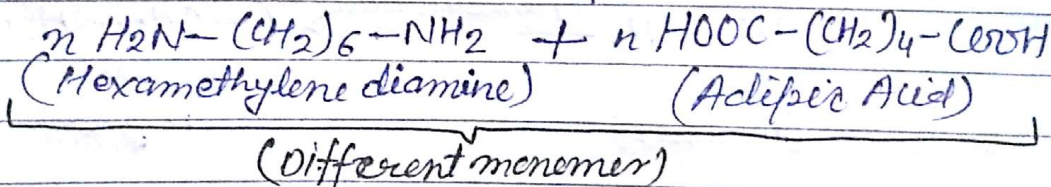 n H2N-(CH2)6-NH2 + n HOOC-(CH2)4-COOH
(Hexamethylene diamine) (Adipic Acid)
(Different monomer)